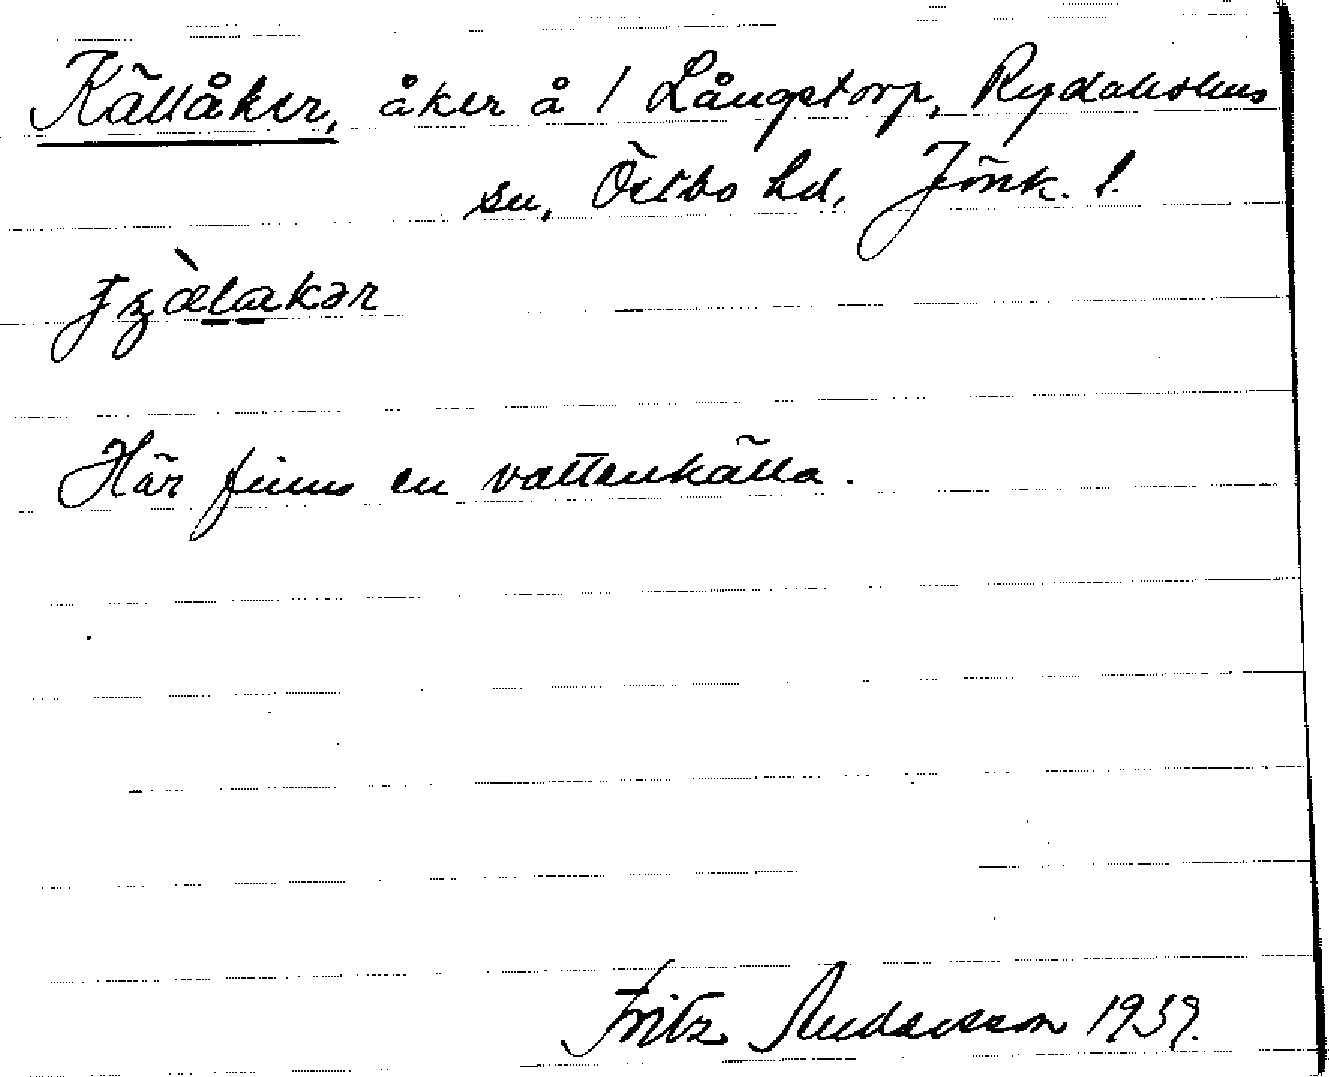 Källåker, åker å 1 Långstorp, Rydaholms
sn, Östbo hd, Jönk. l.
Här finns en vattenkälla.
Fritz Andersson 1939.